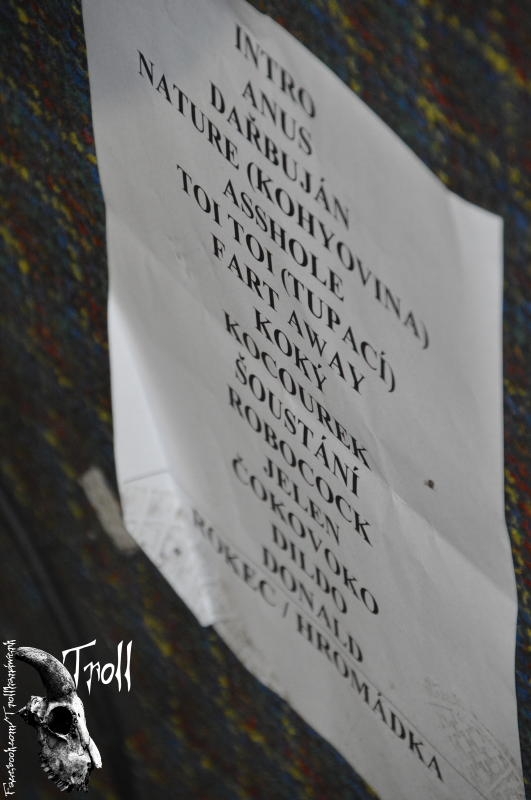 INTRO
ANUS
DAŘBUJÁN
NATURE (KOHYOVINA)
ASSHOLE
TOI TOI (TUPACÍ)
FART AWAY
KOKÝ
KOCOUREK
ŠOUSTÁNÍ
ROBOCOCK
JELEN
ČOKOVOKO
DILDO
DONALD
ROKEC / HROMÁDKA
Troll